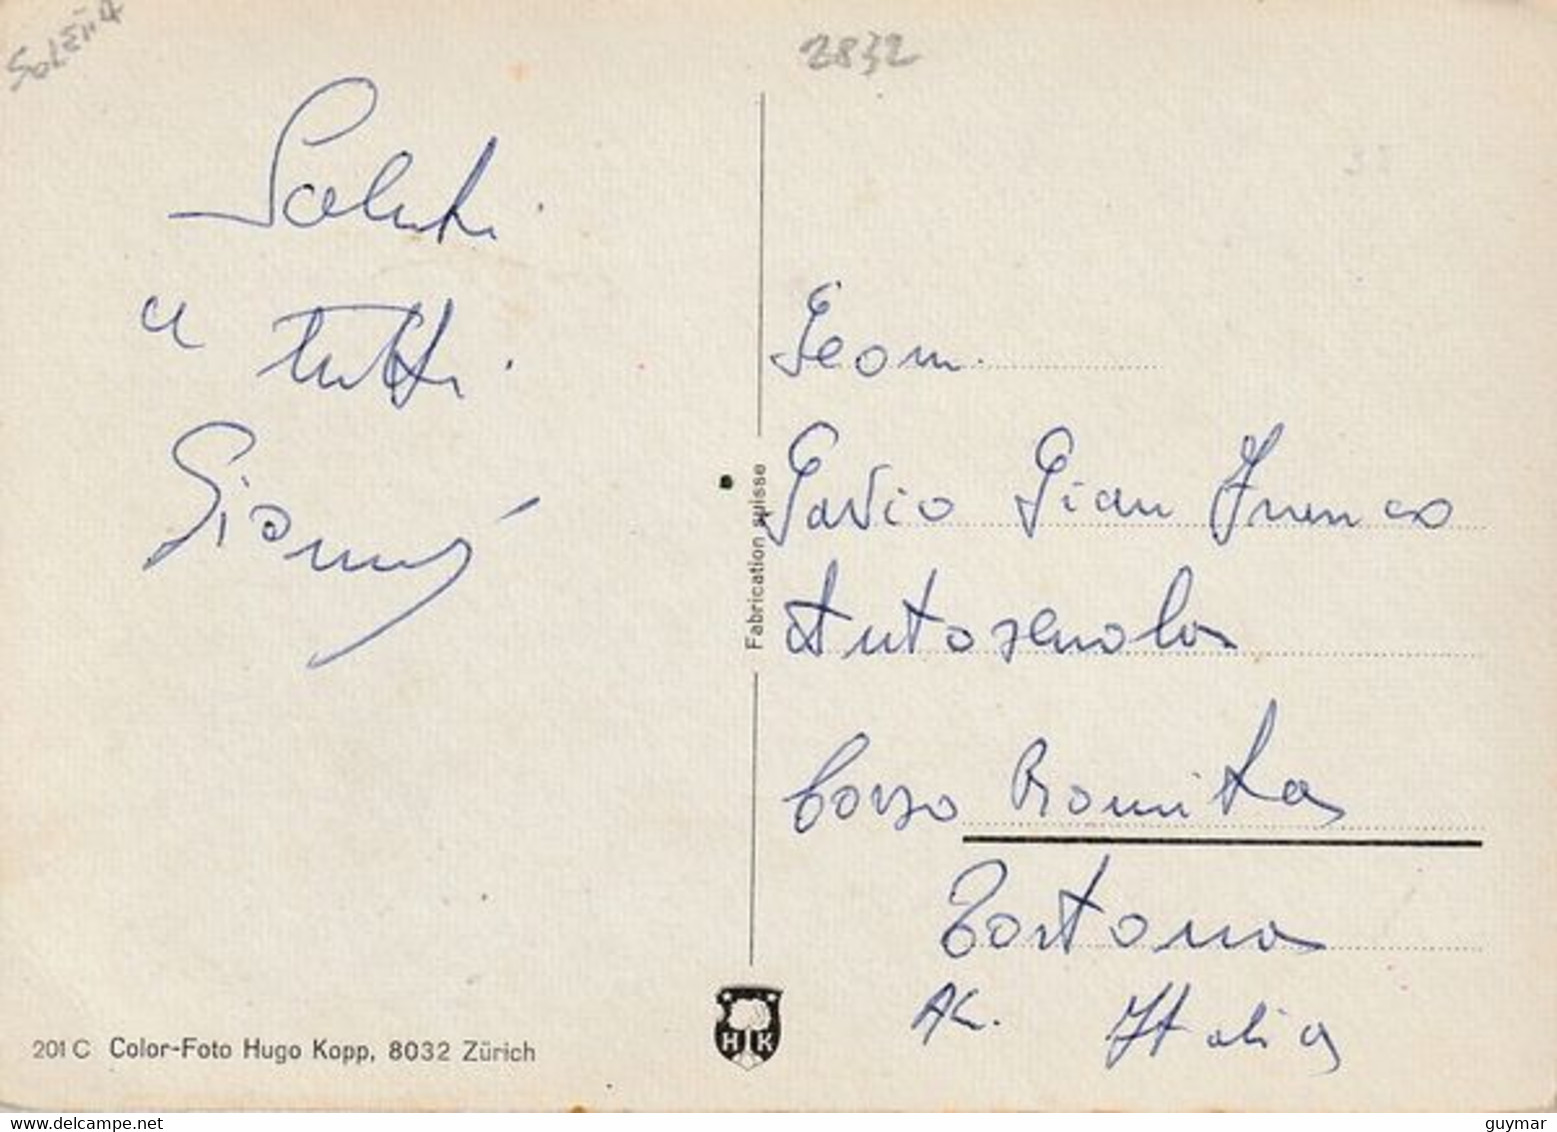 2832
Saluti
a tutti
Gianni
Geom.
Gavio Gian Franco
Autoscuola
Corso Romita
Tortona
AL. Italia
Fabrication suisse
HK
201 C Color-Foto Hugo Kopp, 8032 Zürich
www.delcampe.net
guymar